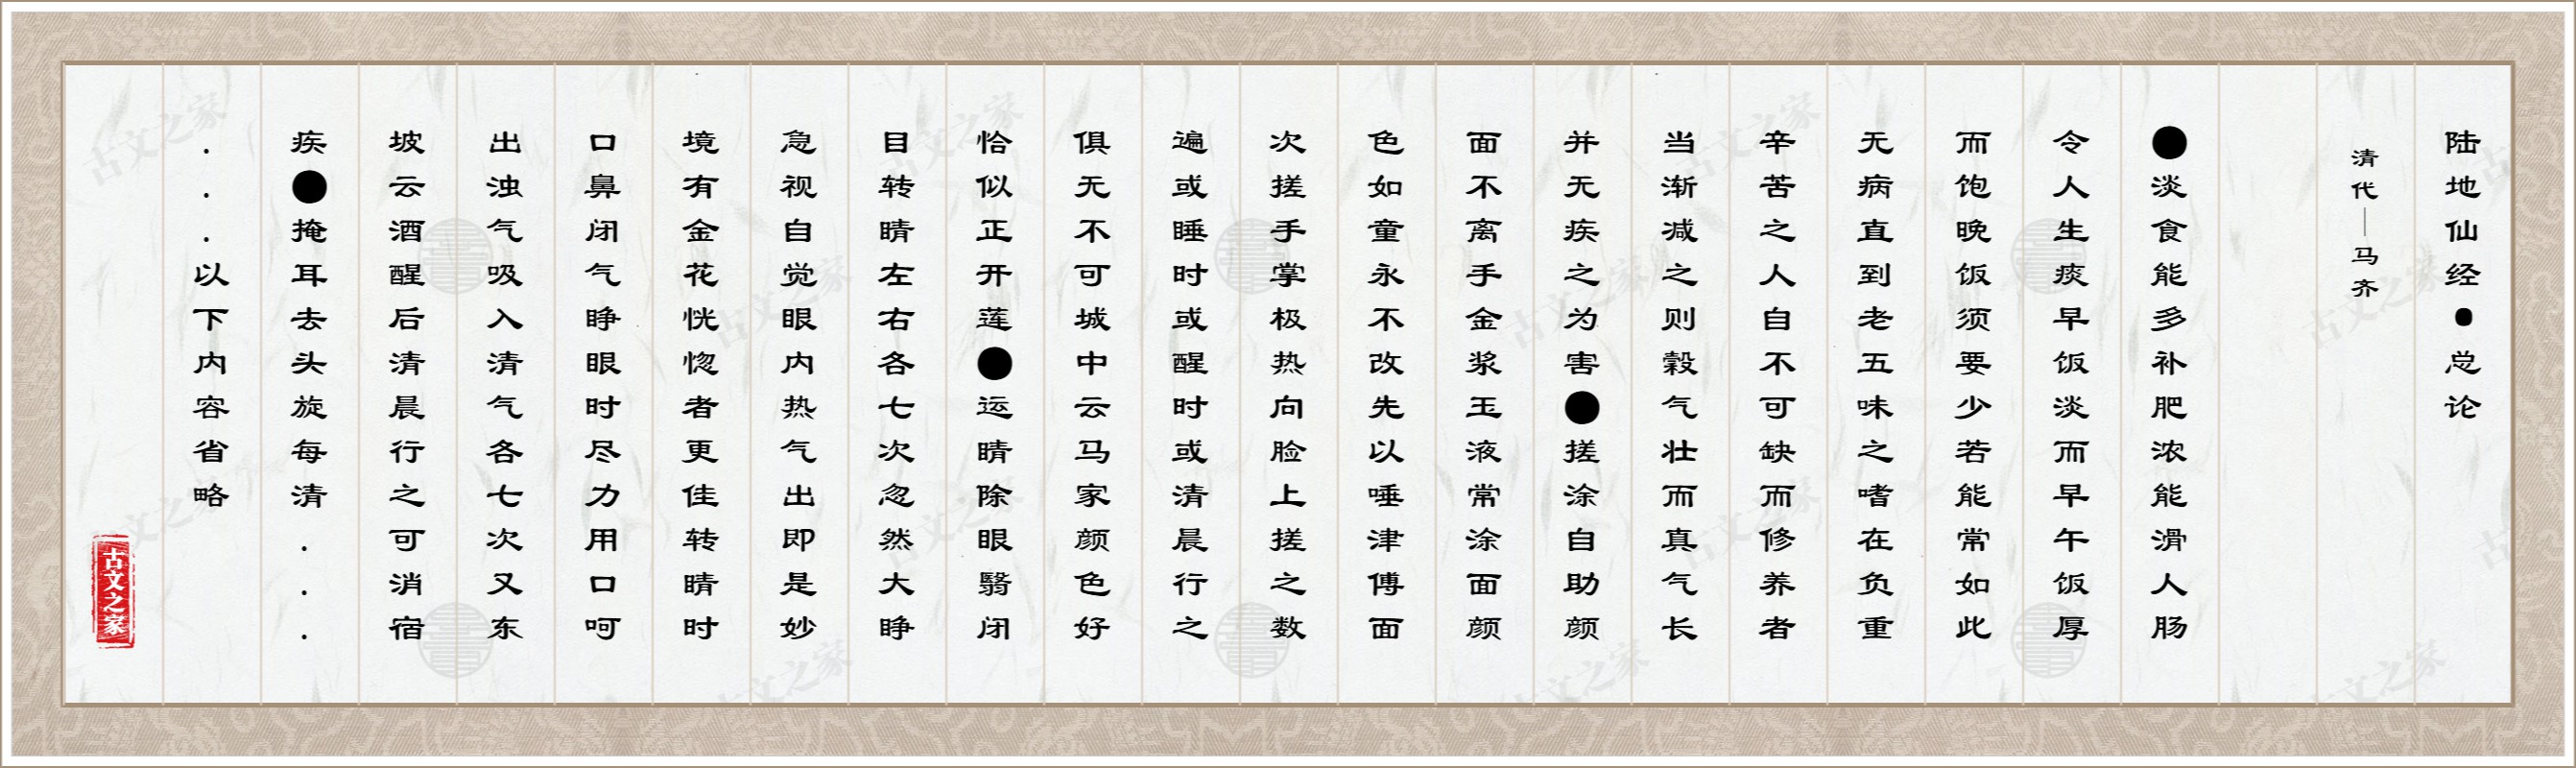 陆地仙经●总论
清代—马齐
●淡食能多补肥浓能滑人肠
令人生痰早饭淡而早午饭厚
而饱晚饭须要少若能常如此
无病直到老五味之嗜在负重
辛苦之人自不可缺而修养者
当渐减之则穀气壮而真气长
并无疾之为害●搓涂自助颜
面不离手金浆玉液常涂面颜
色如童永不改先以唾津傅面
次搓手掌极热向脸上搓之数
遍或睡时或醒时或清晨行之
俱无不可城中云马家颜色好
恰似正开莲●运睛除眼翳闭
目转睛左右各七次忽然大睁
急视自觉眼内热气出即是妙
境有金花恍惚者更佳转睛时
口鼻闭气睁眼时尽力用口呵
出浊气吸入清气各七次又东
坡云酒醒后清晨行之可消宿
疾●掩耳去头旋每清...
...以下内容省略
古文之家